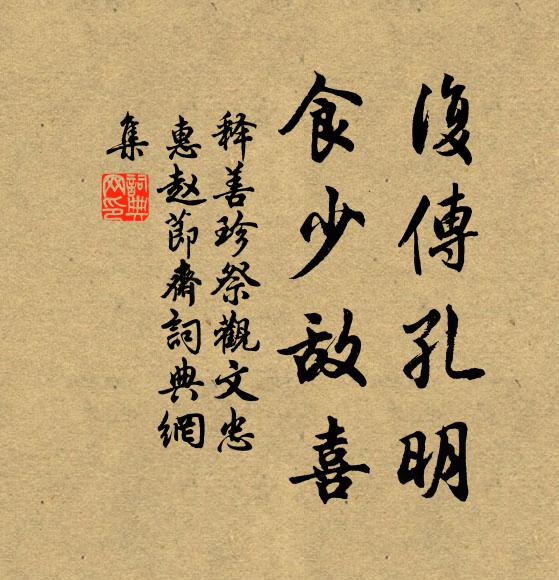 復傳孔明
食少敌喜
释善珍祭觀文忠
惠赵節齋詞典網
集
詞典
网印